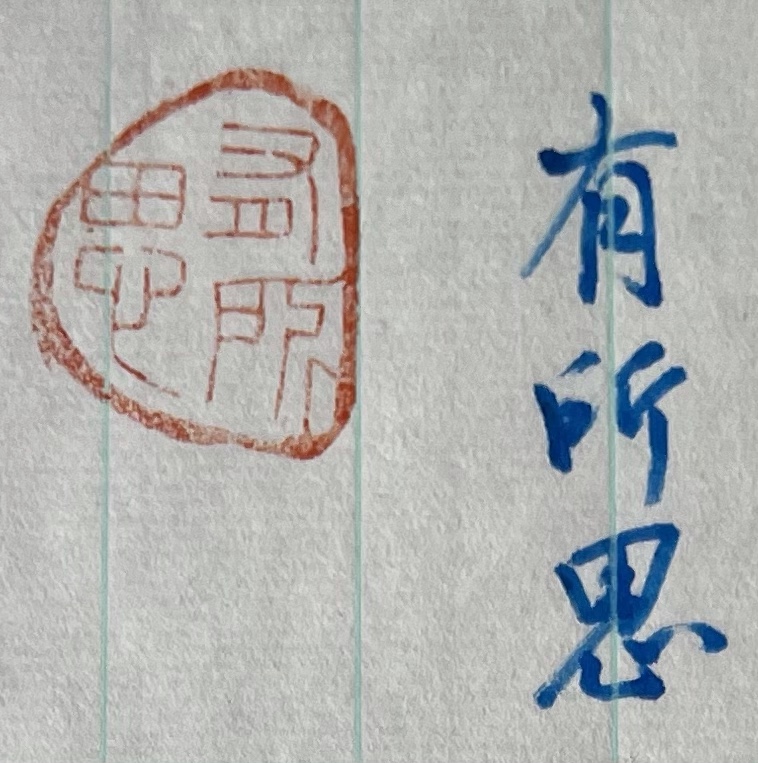 有所思
有所
思